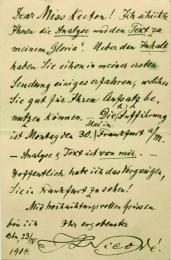 Dear Miss Keeton! Ich schicke
Ihnen die Analyse und den Text zu
meinem "Gloria". Ueber den Inhalt
haben Sie schon in meiner ersten
Sendung einiges erfahren, welches
Sie gut für Ihren Aufsatz be-
nutzen können. Die Aufführung
ist Montag den 30. Frankfurt a/M.
– Analyse & Text ist von mir. –
Hoffentlich habe ich das Vergnügen,
Sie in Frankfurt zu sehen!
Mit hochachtungsvollen Grüssen
bin ich Ihr ergebenster
1904.